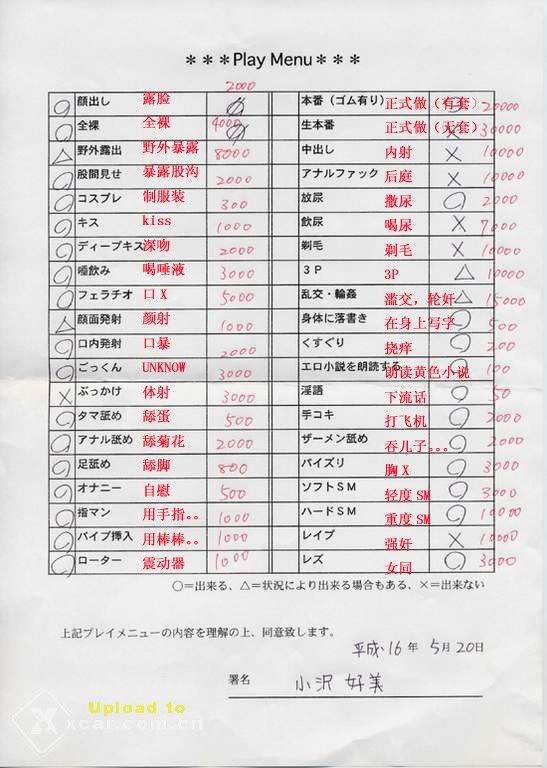 ***Play Menu***
2000
顔出し 露脸
全裸 全裸 4000
野外露出 野外暴露 8000
股間見せ 暴露股沟 2000
コスプレ 制服装 300
キス kiss 1000
ディープキス 深吻 2000
唾飲み 喝唾液 3000
フェラチオ 口X 5000
顔面発射 颜射 1000
口内発射 口暴 2000
ごっくん UNKNOW 3000
ぶっかけ 体射 3000
タマ舐め 舔蛋 500
アナル舐め 舔菊花 2000
足舐め 舔脚 800
オナニー 自慰 500
指マン 用手指。。 1000
バイブ挿入 用棒棒。。 1000
ローター 震动器 1000
本番（ゴム有り） 正式做（有套） 20000
生本番 正式做（无套） 30000
中出し 内射 10000
アナルファック 后庭 10000
放尿 撒尿 2000
飲尿 喝尿 7000
剃毛 剃毛 10000
３Ｐ 3P 10000
乱交・輪姦 滥交，轮奸 15000
身体に落書き 在身上写字 500
くすぐり 挠痒 200
エロ小説を朗読する 朗读黄色小说 100
淫語 下流话 50
手コキ 打飞机 2000
ザーメン舐め 吞儿子。。。 2000
パイズリ 胸X 3000
ソフトＳＭ 轻度SM 3000
ハードＳＭ 重度SM 10000
レイプ 强奸 10000
レズ 女同 3000
○=出来る、△=状況により出来る場合もある、×=出来ない
上記プレイメニューの内容を理解の上、同意致します。
平成16年 5月20日
署名 小沢 好美
Upload to
xcar.com.cn